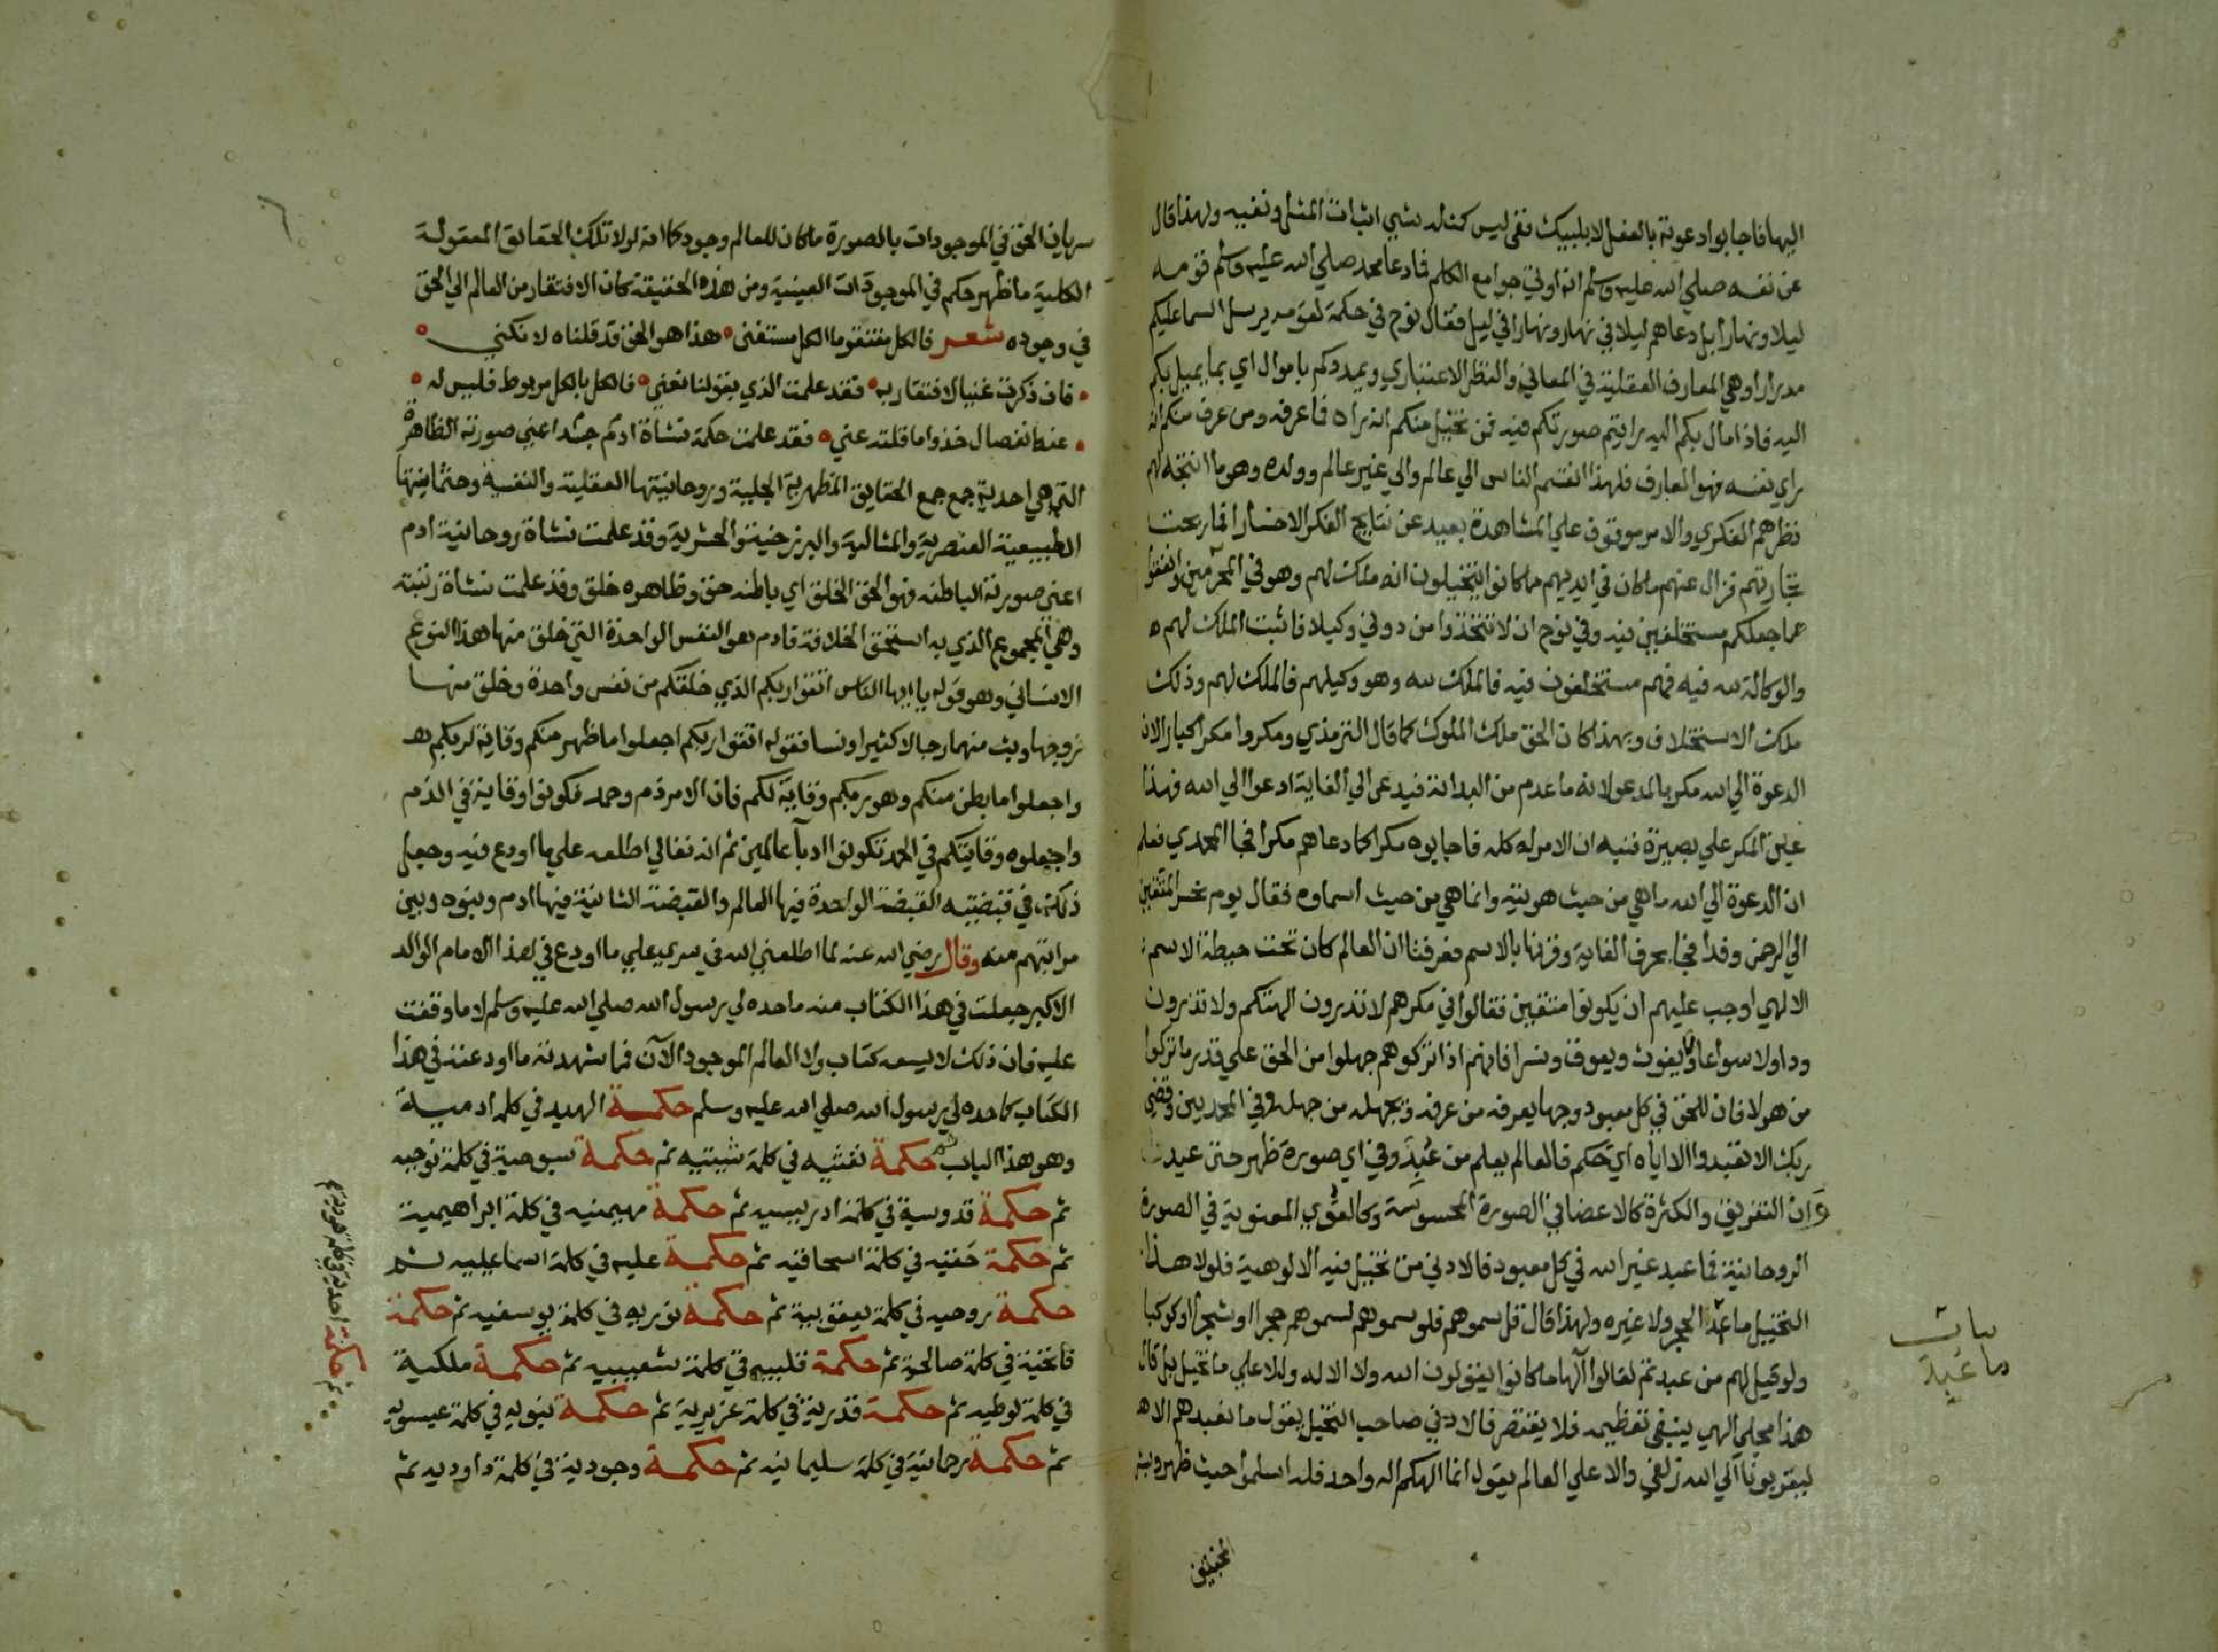 اليها فاجابوا دعوته بالفعل لا بلبيك ففي ليس كمثله شي اثبات المثل ونفيه ولهذا قال
عن نفسه صلي الله عليه وسلم انه اوتي جوامع الكلم فما دعا محمد صلي الله عليه وسلم قومه
ليلا ونهارا بل دعاهم ليلا في نهار ونهارا في ليل فقال نوح في حكمة لقومه يرسل السما عليكم
مدرارا وهي المعارف العقلية في المعاني والنظر الاعتباري ويمددكم باموال اي بما يميل بكم
اليه فاذا مال بكم اليه رايتم صورتكم فيه فمن تخيل منكم انه راه فما عرفه ومن عرف منكم انه
راي نفسه فهو العارف فلهذا انقسم الناس الي عالم والي غير عالم وولده وهو ما انتجه لهم
نظرهم الفكري والامر موقوف علي المشاهدة بعيد عن نتايج الفكر الاخسارا فما ربحت
تجارتهم فزال عنهم ما كان في ايديهم مما كانوا يتخيلون انه ملك لهم وهو في المحمديين وانفقوا
مما جعلكم مستخلفين فيه وفي نوح ان لا تتخذوا من دوني وكيلا فاثبت الملك لهم
والوكالة لله فيه فهم مستخلفون فيه فالملك لله وهو وكيلهم فالملك لهم وذلك
ملك الاستخلاف وبهذا كان الحق ملك الملوك كما قال الترمذي ومكروا مكرا كبارا لان
الدعوة الي الله مكر بالمدعو لانه ما عدم من البداية فيدعي الي الغاية ادعوا الي الله فهذا
عين المكر علي بصيرة فنبه ان الامر له كله فاجابوه مكرا كما دعاهم مكرا فجا المحمدي فعلم
ان الدعوة الي الله ما هي من حيث هويته وانما هي من حيث اسماوه فقال يوم نحشر المتقين
الي الرحمن وفدا فجا بحرف الغاية وقرنها بالاسم فعرفنا ان العالم كان تحت حيطة الاسم
الالهي اوجب عليهم ان يكونوا متقين فقالوا في مكرهم لا تذرون الهتكم ولا تذرون
ودا ولا سواعا ولا يغوث ويعوق ونسرا فانهم اذا تركوهم جهلوا من الحق علي قدر ما تركوا
من هولا فان للحق في كل معبود وجها يعرفه من عرفه ويجهله من جهله وفي المحمديين وقضي
ربك الا تعبدوا الا اياه اي حكم فالعالم يعلم من عُبِدَ وفي اي صورة ظهر حتى عبدت
وان التفريق والكثرة كالاعضا في الصورة المحسوسة وكالقوي المعنوية في الصورة
الروحانية فما عبد غير الله في كل معبود فالادني من تخيل فيه الالوهية فلولا هذا
التخييل ما عبد الحجر ولا غيره ولهذا قال قل سموهم فلو سموهم لسموهم حجرا او شجرا او كوكبا
ولو قيل لهم من عبدتم لقالوا آلها ما كانوا يقولون الله ولا الاله والاعلي ما تخيل بل قال
هذا مجلي الهي ينبغي تعظيمه فلا يقتصر فالادني صاحب التخيل يقول ما نعبدهم الا
ليقربونا الي الله زلفي والاعلي العالم يقول انما الهكم اله واحد فله اسلموا حيث ظهر وبشر
المخبتين
بيات
ما عُبِدَ
سريان الحق في الموجودات بالصورة ما كان للعالم وجود كما انه لولا تلك الحقايق المعقولة
الكلية ما ظهر حكم في الموجودات العينية ومن هذه الحقيقة كان الافتقار من العالم الي الحق
في وجوده شعر فالكل مفتقر ما الكل مستغنى هذا هو الحق قد قلناه لا نكني
فان ذكرت غنيا لا افتقار به فقد علمت الذي بقولنا نعني فالكل بالكل مربوط فليس له
عنه انفصال خذوا ما قلته عني فقد علمت حكمة نشاة ادم جسدا اعني صورته الظاهرة
التي هي احدية جمع جمع الحقايق المظهرية الجلية وروحانيتها العقلية والنفسية وجثمانيتها
الطبيعية العنصرية والمثالية والبرزخية والحشرية وقد علمت نشاة روحانية ادم
اعني صورته الباطنه فهو الحق الخلق اي باطنه حق وظاهره خلق وقد علمت نشاة رتبته
وهي المجموع الذي به استحق الخلافة فادم هو النفس الواحدة التي خلق منها هذا النوع
الانساني وهو قوله يا ايها الناس اتقوا ربكم الذي خلقكم من نفس واحدة وخلق منها
زوجها وبث منهما رجالا كثيرا ونسا فقوله اتقوا ربكم اجعلوا ما ظهر منكم وقاية لربكم
واجعلوا ما بطن منكم وهو ربكم وقاية لكم فان الامر ذم وحمد فكونوا وقايته في الذم
واجعلوه وقايتكم في الحمد تكونوا ادبآ عالمين ثم انه تعالي اطلعه علي ما اودع فيه وجعل
ذلك في قبضتيه القبضة الواحدة فيها العالم والقبضة الثانية فيها ادم وبنوه وبين
مراتبهم فيه وقال رضي الله عنه لما اطلعني الله في سري علي ما اودع في هذا الامام الوالد
الاكبر جعلت في هذا الكتاب منه ما حده لي رسول الله صلي الله عليه وسلم لا ما وقفت
عليه فان ذلك لا يسعه كتاب ولا العالم الموجود الآن فما شهدته ما اودعته في هذا
الكتاب كما حده لي رسول الله صلي الله عليه وسلم حكمة الهيه في كلمه ادميه
وهو هذا الباب ثم حكمة نفثيه في كلمة شيثيه ثم حكمة سبوحية في كلمة نوحيه
ثم حكمة قدوسية في كلمة ادريسيه ثم حكمة مهيمنيه في كلمة ابراهيمية
ثم حكمة حقيه في كلمة اسحاقيه ثم حكمة عليه في كلمة اسماعيليه ثم
حكمة روحيه في كلمة يعقوبية ثم حكمة نوريه في كلمة يوسفيه ثم حكمة
ثم حكمة احديه في كلمة هودية
فاتحية في كلمة صالحية ثم حكمة قلبيه في كلمة شعيبيه ثم حكمة ملكية
في كلمة لوطيه ثم حكمة قدرية في كلمة عزيرية ثم حكمة نبويه في كلمة عيسويه
ثم حكمة رحمانية في كلمة سليمانيه ثم حكمة وجودية في كلمة داوديه ثم